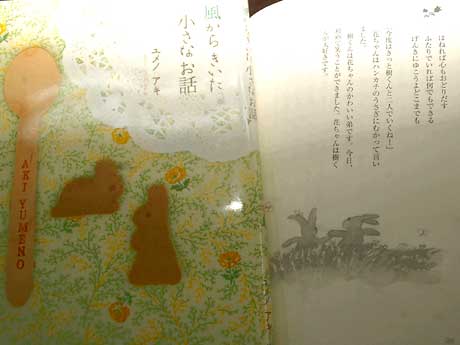 風からきいた
小さなお話
ユメノ アキ
AKI YUMENO
はねれば心もおどりだす
ふたりでいれば何でもできる
げんきにゆこうよどこまでも
「今度はきっと樹くんと二人でいくね！」
花ちゃんはハンカチのうさぎにむかって言い
ました。
樹くんは花ちゃんのかわいい弟です。今日、
初めて笑うことができました。花ちゃんは樹く
んが大好きです。